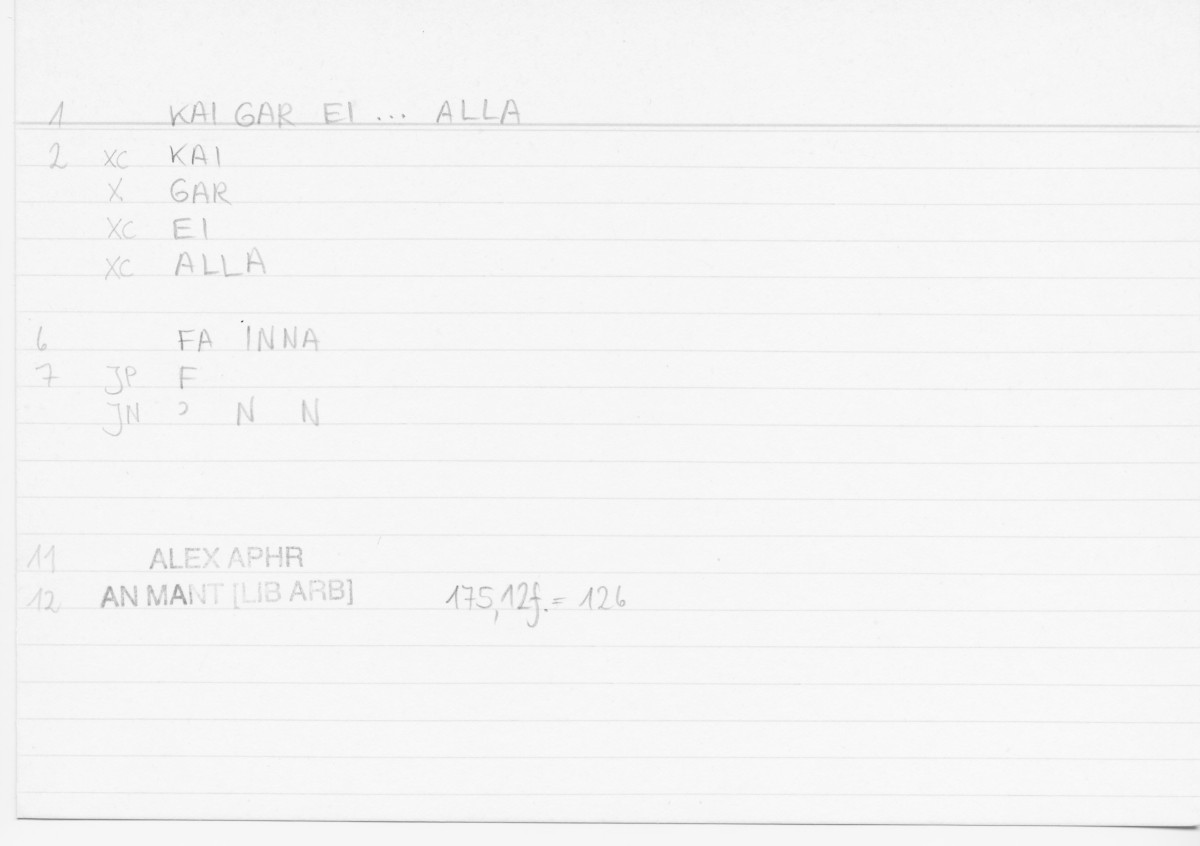 1 KAI GAR EI ... ALLA
2 XC KAI
X GAR
XC EI
XC ALLA
6 FA INNA
7 JP F
JN ʾ N N
11 ALEX APHR
12 AN MANT [LIB ARB] 175,12f. = 126